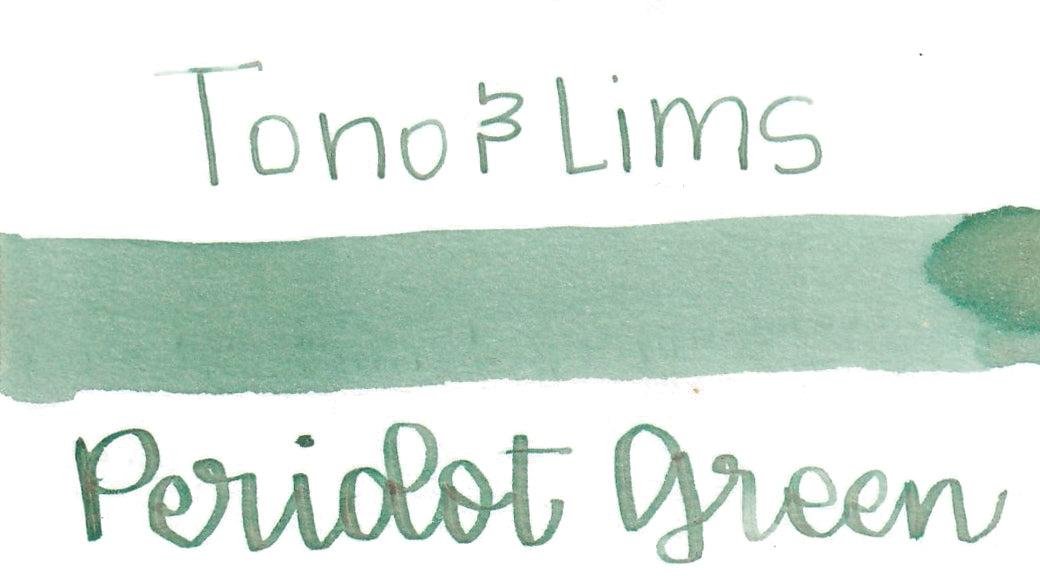 Tono & Lims
Peridot Green